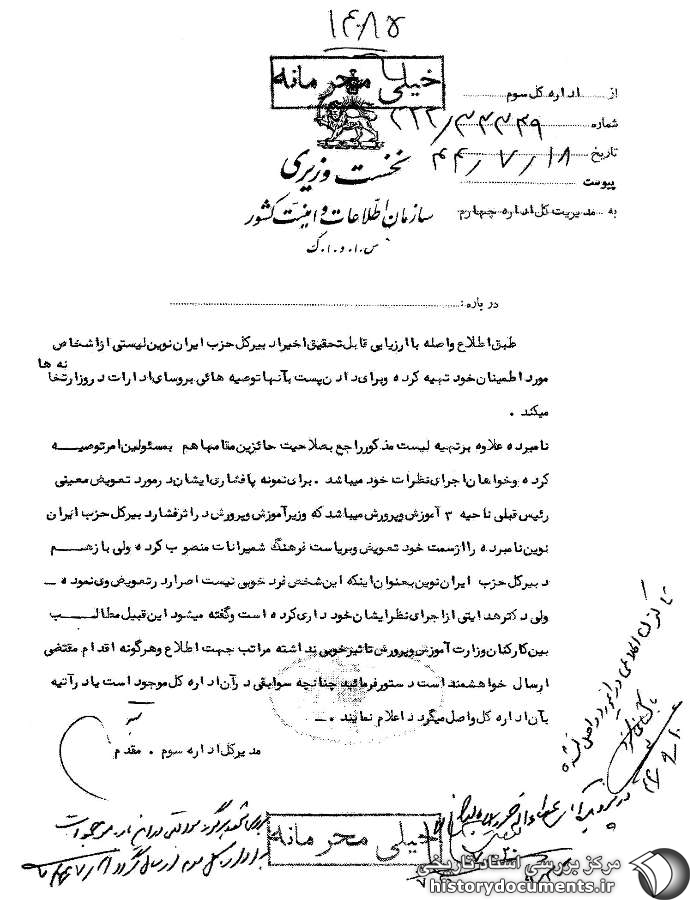 ۱۴۰۸۵
خیلی محرمانه
از اداره کل سوم
شماره ۳۲۲/۳۳۳۴۹
تاریخ ۴۴/۷/۱۸
پیوست
به مدیریت کل اداره چهارم
نخست وزیری
سازمان اطلاعات و امنیت کشور
س.ا.و.ا.ک
درباره:
طبق اطلاع واصله با ارزیابی قابل تحقیق اخیرا دبیرکل حزب ایران نوین لیستی از اشخاص
مورد اطمینان خود تهیه کرده و برای دادن پست بآنها توصیه هائی بروسای ادارات در وزارتخانه ها
میکند .
نامبرده علاوه بر تهیه لیست مذکور راجع بصلاحیت حائزین مقامها هم بمسئولین امر توصیه
کرده و خواهان اجرای نظرات خود میباشد . برای نمونه پافشاری ایشان در مورد تعویض معینی
رئیس قبلی ناحیه ۳ آموزش و پرورش میباشد که وزیر آموزش و پرورش در اثر فشار دبیرکل حزب ایران
نوین نامبرده را از سمت خود تعویض و بریاست فرهنگ شمیرانات منصوب کرده ولی باز هم
دبیرکل حزب ایران نوین بعنوان اینکه این شخص فرد خوبی نیست اصرار در تعویض وی نموده
ولی دکتر هدایتی از اجرای نظر ایشان خودداری کرده است و گفته میشود این قبیل مطالب
بین کارکنان وزارت آموزش و پرورش تاثیر خوبی نداشته مراتب جهت اطلاع و هرگونه اقدام مقتضی
ارسال خواهشمند است دستور فرمائید چنانچه سوابقی در آن اداره کل موجود است یا در آتیه
بآن اداره کل واصل میگردد اعلام نمایند .
مدیرکل اداره سوم . مقدم
خیلی محرمانه
مرکز بررسی اسناد تاریخی
historydocuments.ir